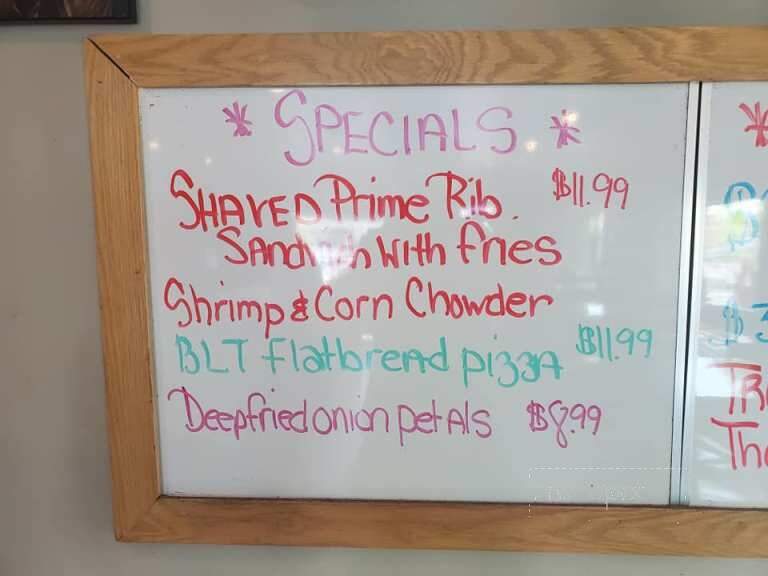 * SPECIALS *
SHAVED Prime Rib $11.99
SANdwich With fries
Shrimp & Corn Chowder
BLT flatbread pizzA $11.99
Deepfried onion petAls $8.99